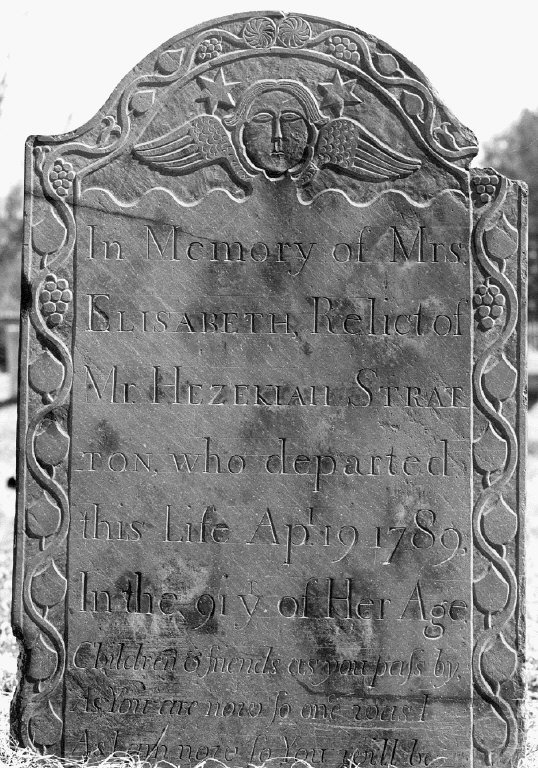 In Memory of Mrs.
ELISABETH, Relict of
Mr. HEZEKIAH STRAT
TON. who departed
this Life Apl. 19 1789.
In the 91 y. of Her Age
Children & friends as you paſs by,
As You are now ſo one was I
As I am now ſo You will be